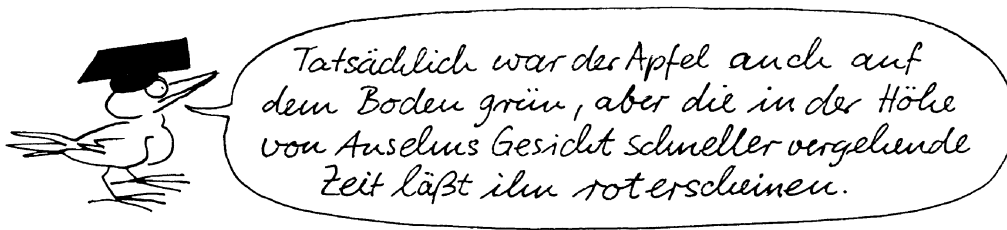 Tatsächlich war der Apfel auch auf
dem Boden grün, aber die in der Höhe
von Anselms Gesicht schneller vergehende
Zeit läßt ihn rot erscheinen.